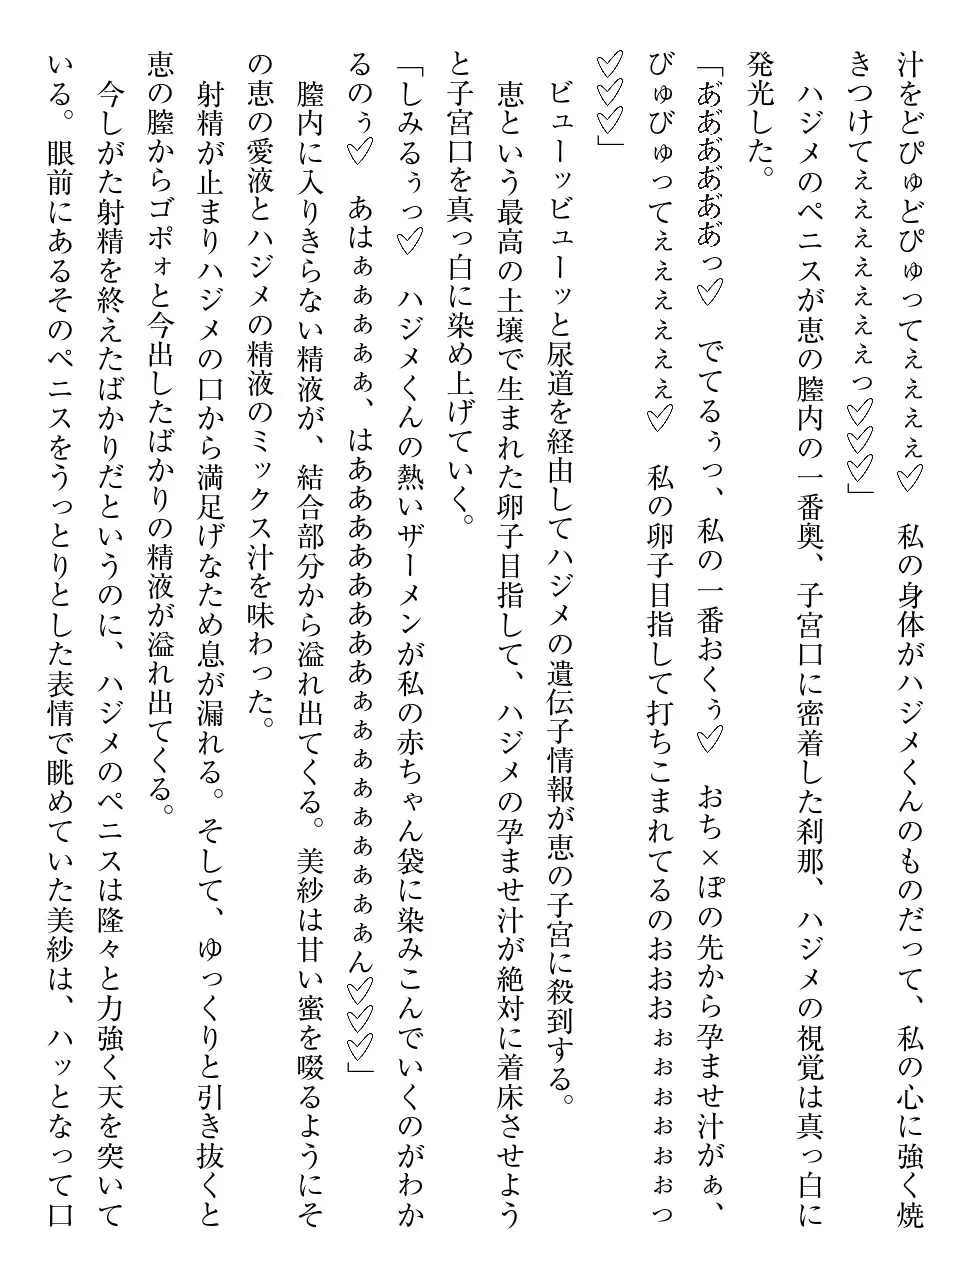 汁をどぴゅどぴゅってぇぇぇぇ♡　私の身体がハジメくんのものだって、私の心に強く焼
きつけてぇぇぇぇぇぇぇっ♡♡♡」
　ハジメのペニスが恵の膣内の一番奥、子宮口に密着した刹那、ハジメの視覚は真っ白に
発光した。
「あ゛あ゛あ゛あ゛あ゛あ゛っ♡　でてるぅっ、私の一番おくぅ♡　おち×ぽの先から孕ませ汁がぁ、
びゅびゅってぇぇぇぇぇぇ♡　私の卵子目指して打ちこまれてるのおおおぉぉぉぉぉぉっ
♡♡♡」
　ビューッビューッと尿道を経由してハジメの遺伝子情報が恵の子宮に殺到する。
　恵という最高の土壌で生まれた卵子目指して、ハジメの孕ませ汁が絶対に着床させよう
と子宮口を真っ白に染め上げていく。
「しみるぅっ♡　ハジメくんの熱いザーメンが私の赤ちゃん袋に染みこんでいくのがわか
るのぅ♡　あはぁぁぁぁぁ、はああああああああぁぁぁぁぁぁぁぁぁん♡♡♡」
　膣内に入りきらない精液が、結合部分から溢れ出てくる。美紗は甘い蜜を啜るようにそ
の恵の愛液とハジメの精液のミックス汁を味わった。
　射精が止まりハジメの口から満足げなため息が漏れる。そして、ゆっくりと引き抜くと
恵の膣からゴポォと今出したばかりの精液が溢れ出てくる。
　今しがた射精を終えたばかりだというのに、ハジメのペニスは隆々と力強く天を突いて
いる。眼前にあるそのペニスをうっとりとした表情で眺めていた美紗は、ハッとなって口